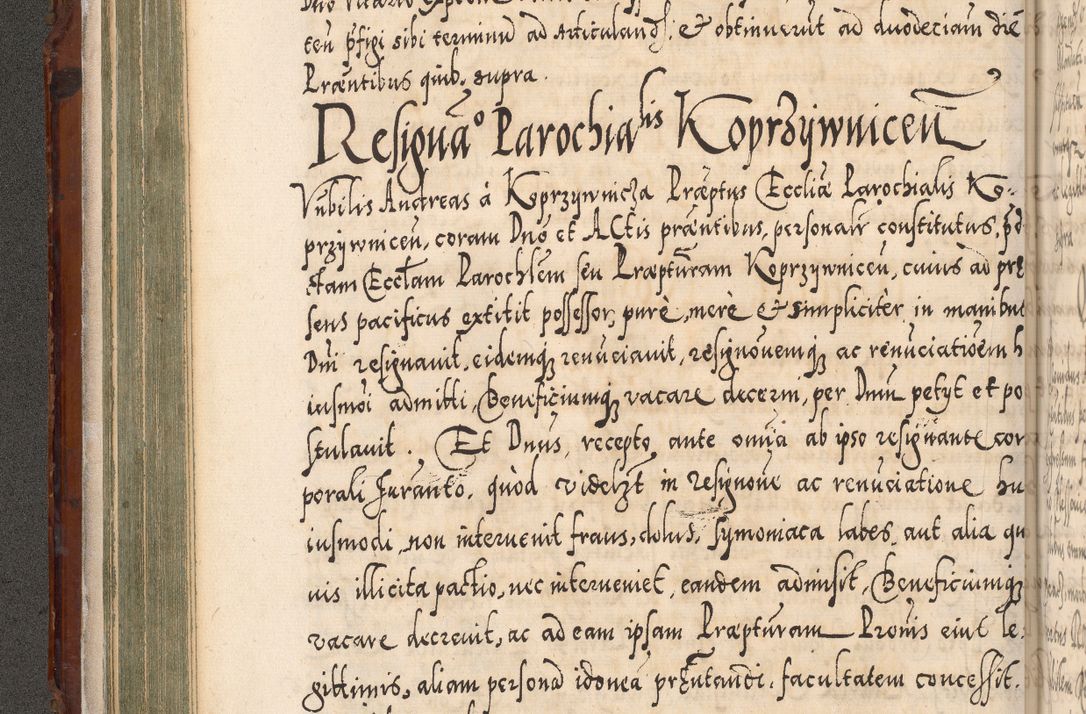 teń pfigi sibi terminū ad Articulandʒ. et obtinuerūt ad duodeciam diē
Præntibus quib. supra.
Resignāo Parochialis Koprzywniceń
Vńbilis Andreas à Koprzywnicza Præptus Eccliæ Parochialis Ko-
przywniceń, coram Dno et Actis præntibus, personalr constitutus, pd
ctam Ecclam Parochlem seu Præpturam Koprzywniceń, cuius ad præ
sens pacificus extitit possessor, purè, mere et simpliciter in manibus
Dni resignauit, eidemq renuciauit, resignouemq ac renuciatioem h
iusmoi admitti, Beneficiumq vacare decerni, per Dnm petyt et po
stulauit. Et Dnus, recepto ante omia ab ipso resignante cor
porali Iuranto, quòd videlzt in resignoue ac renuciatione hu
iusmodi, non interuenit fraus, dolus, symoniaca labes, aut alia qu
uis illicita pactio, nec interueniet, eandem admisit, Beneficiumq
vacare decreuit, ac ad eam ipsam Præpturam Pronis eiut le.
gittimis, aliam personā idoneā præntandi facultatem concessit.